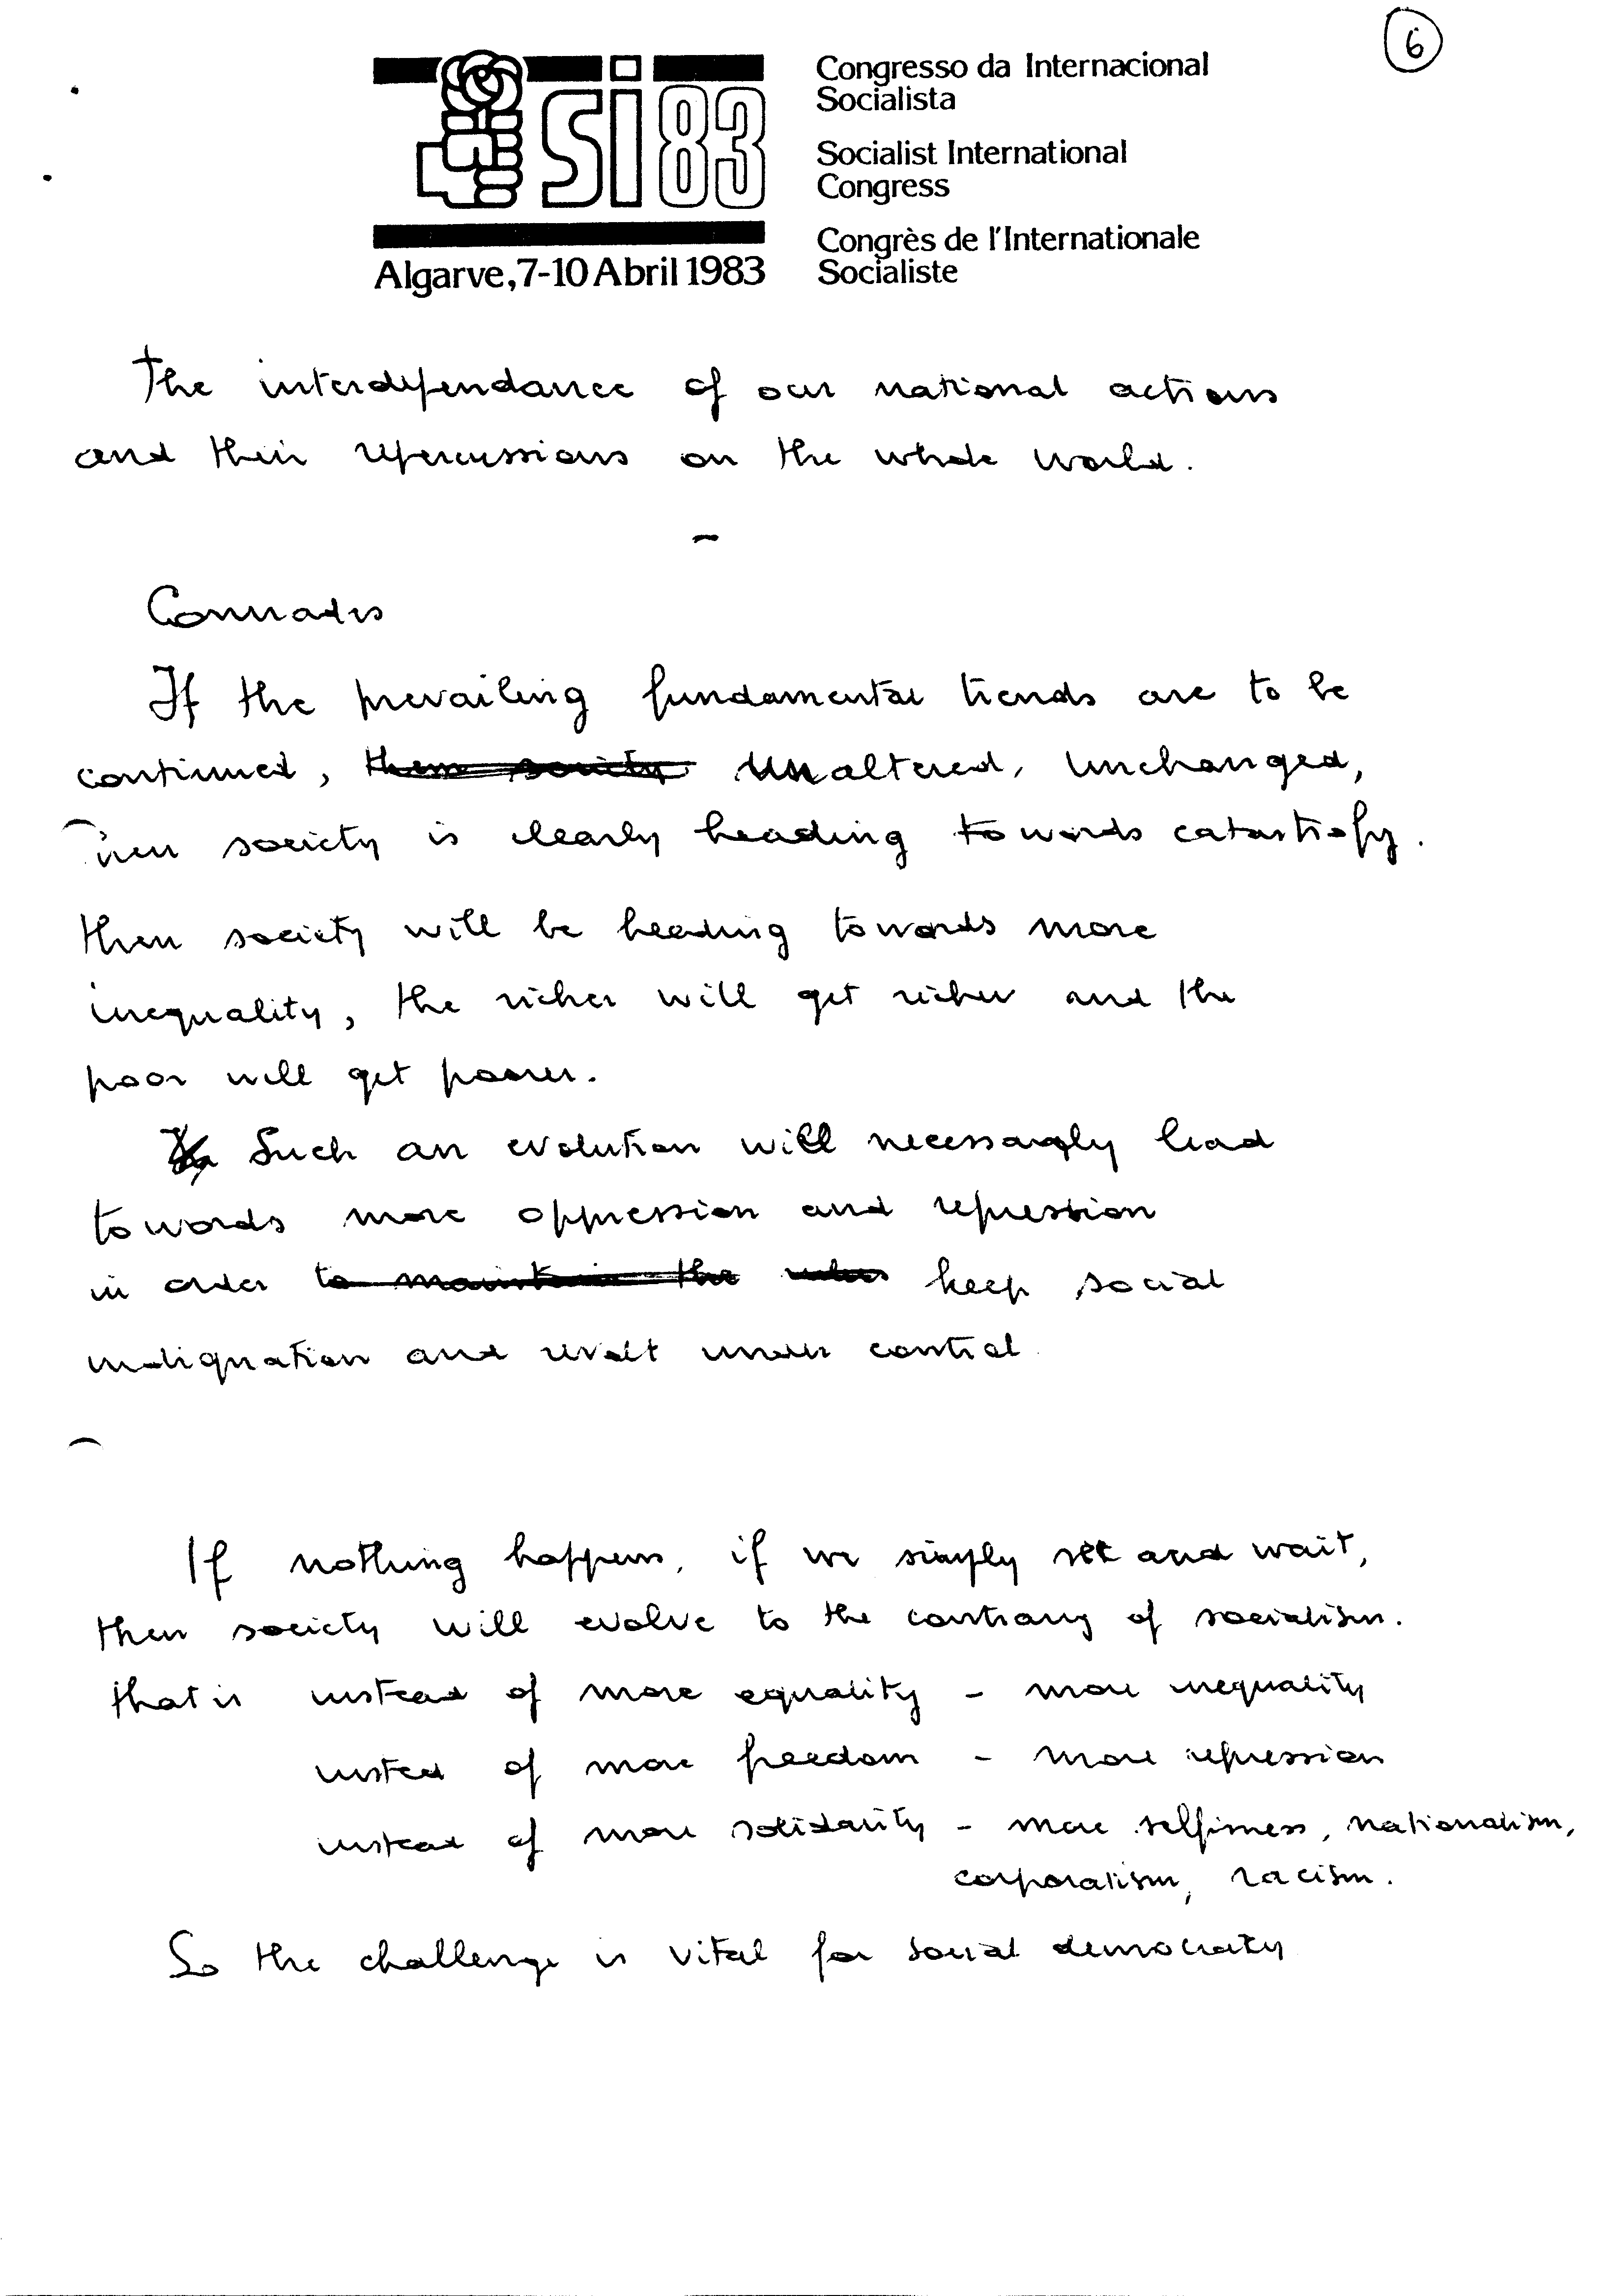 6
si 83
Algarve, 7-10 Abril 1983
Congresso da Internacional
Socialista
Socialist International
Congress
Congrès de l'Internationale
Socialiste
The interdependance of our national actions
and their repercussions on the whole world.
Comrades
If the prevailing fundamental trends are to be
continued, then society unaltered, unchanged,
then society is clearly heading towards catastrofy.
then society will be heading towards more
inequality, the richer will get richer and the
poor will get poorer.
Such an evolution will necessarily lead
towards more oppression and repression
in order to maintain the keep social
indignation and revolt under control.
If nothing happens, if we simply sit and wait,
then society will evolve to the contrary of socialism.
that is instead of more equality - more inequality
insted of more freedom - more repression
instead of more solidarity - more selfisness, nationalism,
corporatism, racism.
So the challenge is vital for social democraty